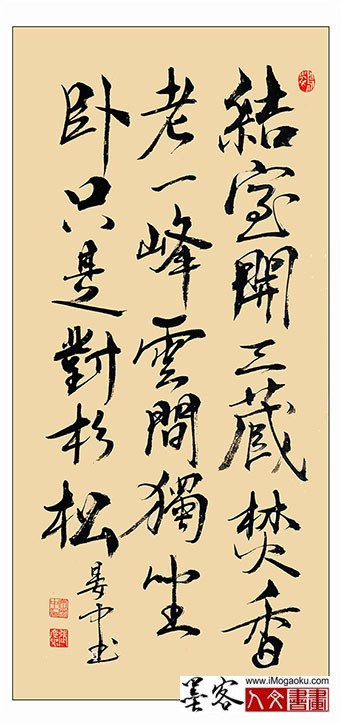 結室開三藏焚香
老一峰雲間獨坐
卧只是對杉松
晏中书
墨客
人文書畫
www.iMogaoku.com